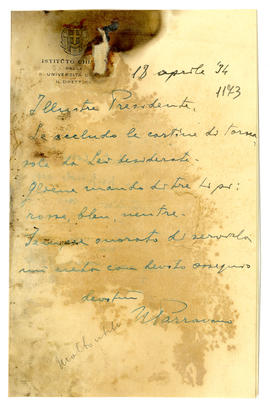 ISTITUTO CHI
DELLA
R. UNIVERSITÀ D
IL DIRETTORE
18 aprile '34
1143
Illustre Presidente,
Le accludo le cartine di torna
sole da Lei desiderate.
Gliene mando di tre tipi:
rosse, bleu, neutre.
onorato di servirla
con devoto ossequio
devotmo
N Parravano